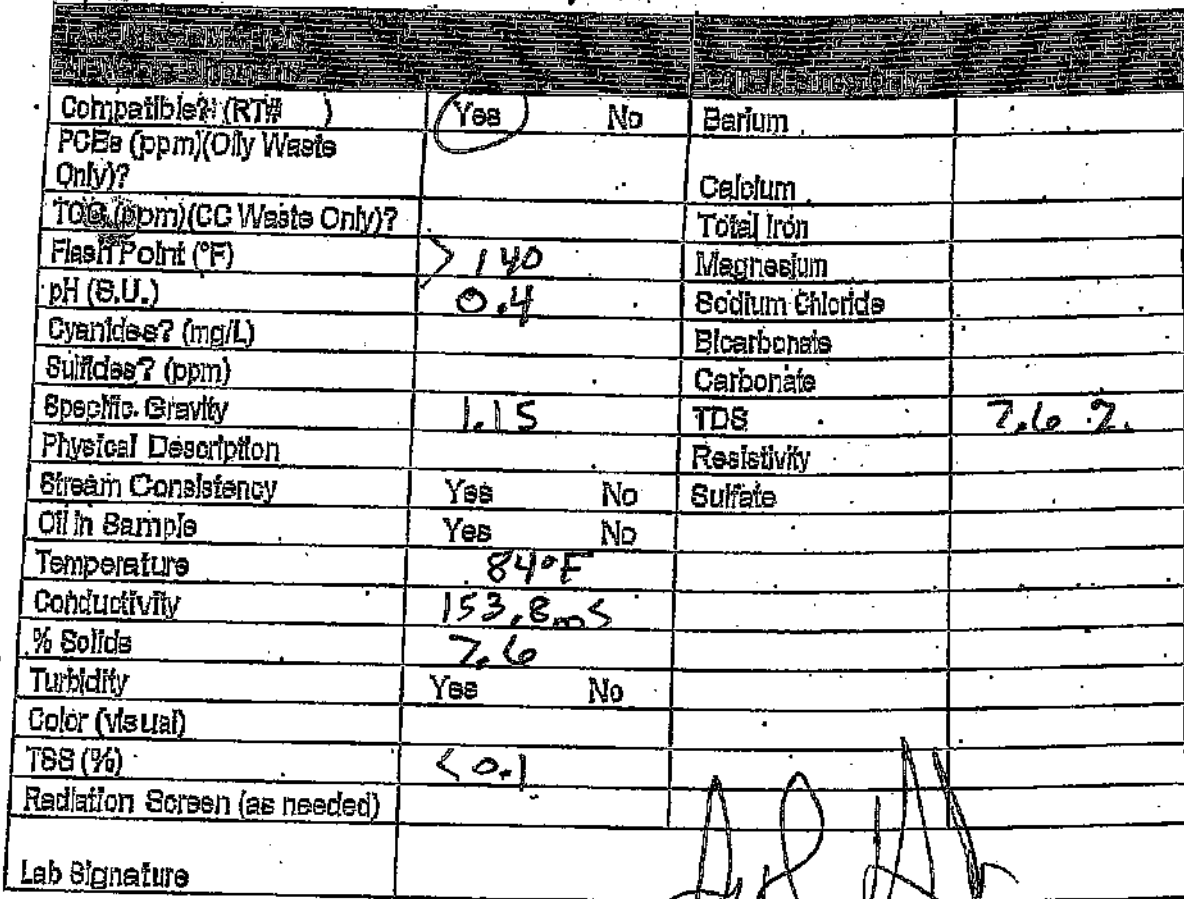 Compatible? (RT# ) Yes No Barium
PCBs (ppm)(Oily Waste
Only)? Calcium
TOC (ppm)(CC Waste Only)? Total Iron
Flash Point (°F) > 140 Magnesium
pH (S.U.) 0.4 Sodium Chloride
Cyanides? (mg/L) Bicarbonate
Sulfides? (ppm) Carbonate
Specific Gravity 1.15 TDS 7.6 %
Physical Description Resistivity
Stream Consistency Yes No Sulfate
Oil in Sample Yes No
Temperature 84°F
Conductivity 153.8mS
% Solids 7.6
Turbidity Yes No
Color (visual)
TSS (%) < 0.1
Radiation Screen (as needed)
Lab Signature